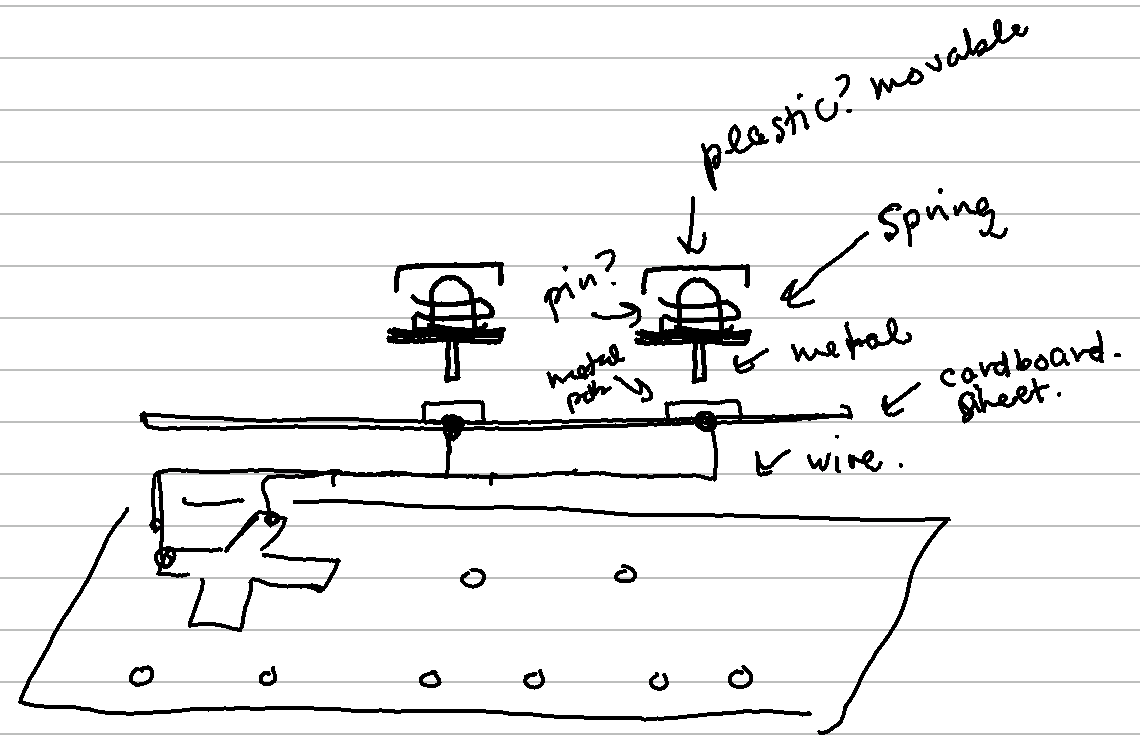 plastic? movable
Spring
pin?
metal
metal
cardboard.
sheet.
wire.